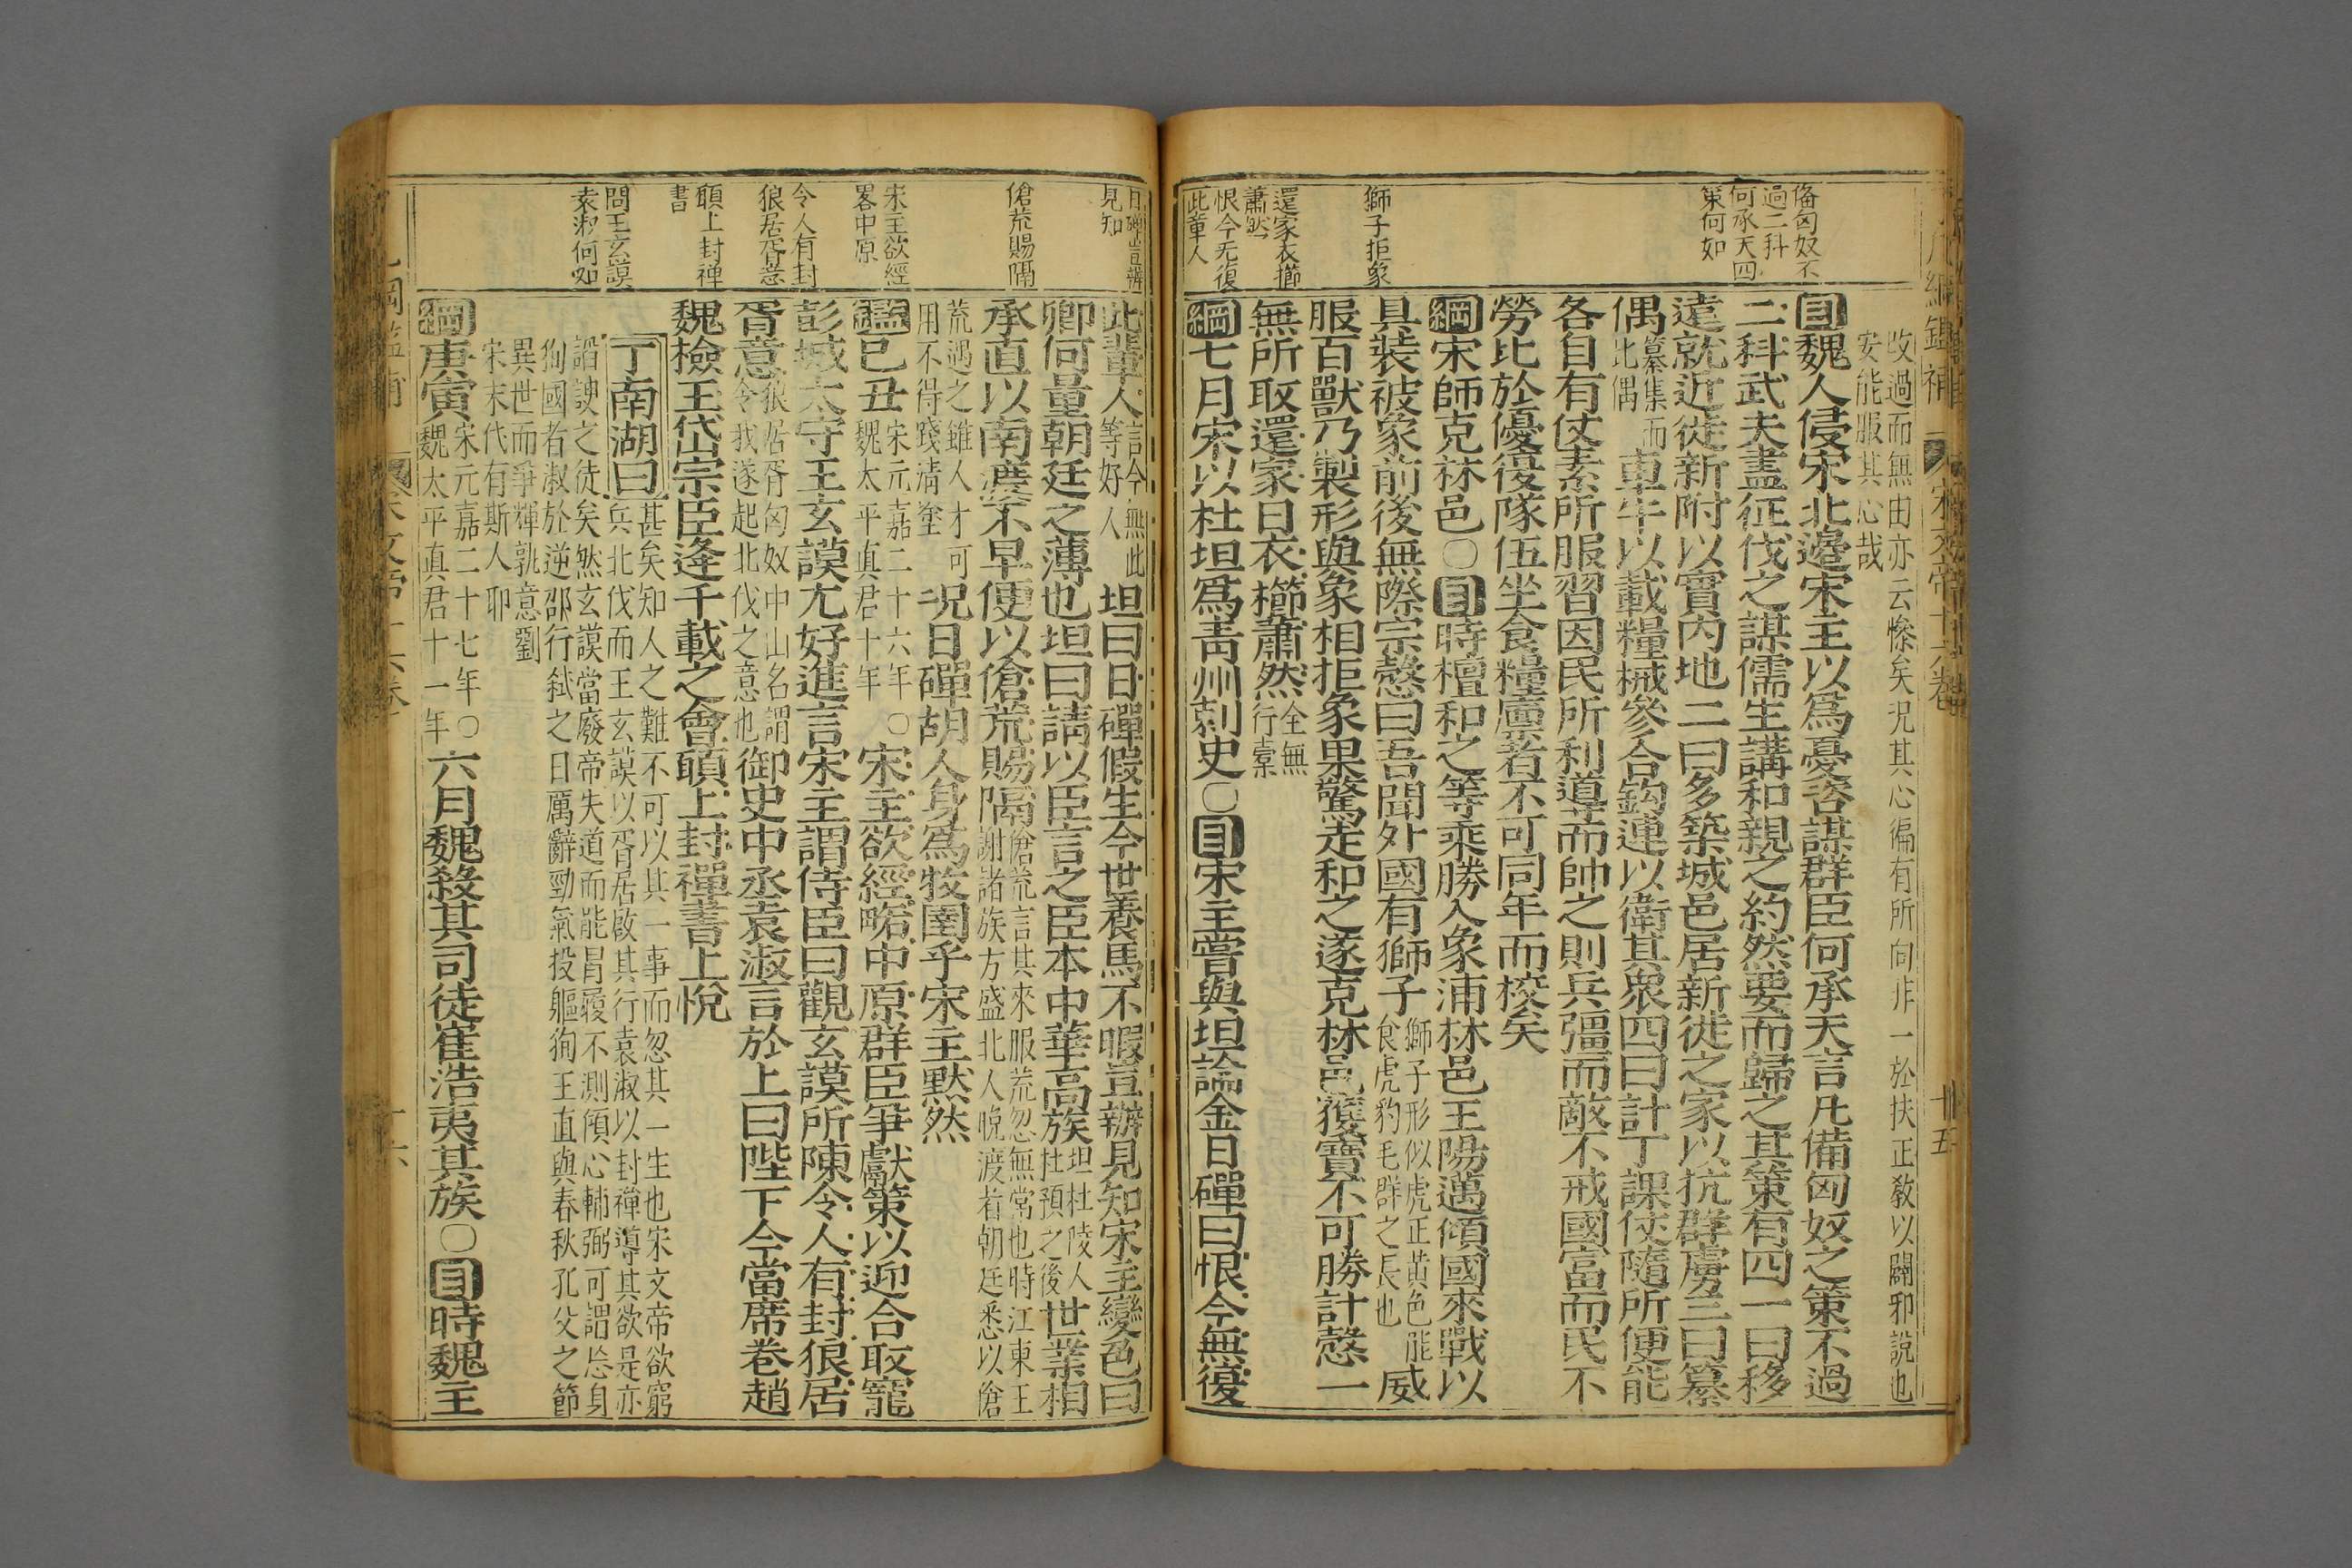 備匈奴不
過二科
何承天四
策何如
獅子拒象
還家衣櫛
蕭然
恨今无復
此輩人
攺過而無由亦云慘矣況其心徧有所向非一於扶正敎以闢邪說也
安能服其心哉
目魏人侵宋北邊宋主以爲憂咨謀群臣何承天言凡備匈奴之策不過
二科武夫盡征伐之謀儒生講和親之約然要而歸之其策有四一曰移
遠就近徙新附以實內地二曰多築城邑居新徙之家以抗群虜三曰纂
偶纂集而比偶車牛以載糧械參合鈎連以衛其衆四曰計丁課仗隨所便能
各自有仗素所服習因民所利導而帥之則兵彊而敵不戒國富而民不
勞比於優復隊伍坐食糧廩者不可同年而校矣
綱宋師克林邑〇目時檀和之等乘勝入象浦林邑王陽邁傾國來戰以
具裝被象前後無際宗慤曰吾聞外國有獅子獅子形似虎正黃色能食虎豹毛群之長也威
服百獸乃製形與象相拒象果驚走和之遂克林邑獲寶不可勝計慤一
無所取還家日衣櫛蕭然全無行橐
綱七月宋以杜坦爲靑州刺史〇目宋主嘗與坦論金日磾曰恨今無復
日磾豈辨
見知
傖荒賜隔
宋主欲經
畧中原
令人有封
狼居胥意
頓上封禅
書
問王玄謨
袁淑何如
此輩人言今無此等好人坦曰日磾假生今世養馬不暇豈辦見知宋主變色曰
卿何量朝廷之薄也坦曰請以臣言之臣本中華高族坦杜陵人杜預之後世業相
承直以南渡不早便以傖荒賜隔傖荒言其來服荒忽無常也時江東王謝諸族方盛北人晚渡者朝廷悉以傖
荒遇之雖人才可用不得踐淸塗況日磾胡人身爲牧圉乎宋主默然
鑑己丑宋元嘉二十六年魏太平真君十年〇宋主欲經略中原群臣爭獻策以迎合取寵
彭城太守王玄謨尤好進言宋主謂侍臣曰觀玄謨所陳令人有封狼居
胥意狼居胥匈奴中山名謂令我遂起北伐之意也御史中丞袁淑言於上曰陛下今當席卷趙
魏檢玉岱宗臣逢千載之會頓上封禪書上悅
丁南湖曰甚矣知人之難不可以其一事而忽其一生也宋文帝欲窮
兵北伐而王玄謨以胥居啟其行袁淑以封禪導其欲是亦
謟諛之徒矣然玄謨當廢帝失道而能冒履不測傾心輔弼可謂忘身
徇國者淑於逆邵行弒之日厲辭勁氣投軀徇王直與春秋孔父之節
異世而爭輝孰意劉
宋末代有斯人耶
綱庚寅宋元嘉二十七年魏太平真君十一年〇六月魏殺其司徒崔浩夷其族〇目時魏主